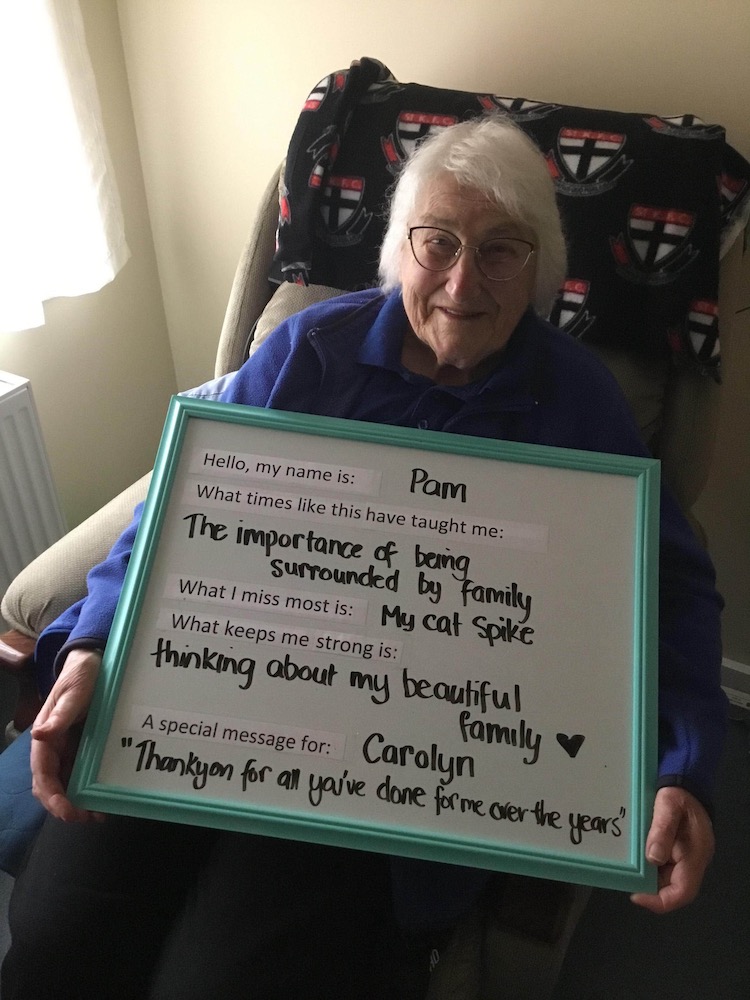 ST.K.F.C.
ST.K.F.C.
ST.K.F.C.
ST.K.F.C.
Hello, my name is: Pam
What times like this have taught me:
The importance of being
surrounded by family
What I miss most is: My cat Spike
What keeps me strong is:
thinking about my beautiful
family ♥
A special message for: Carolyn
"Thankyou for all you've done for me over the years"